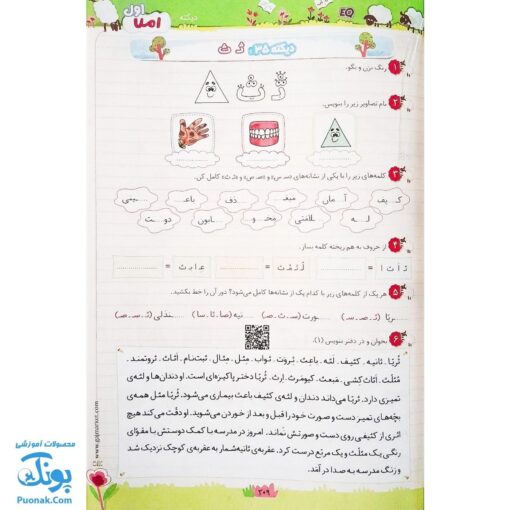 دیکته
املا اول
EQ
دیکته ۳۵: ثـ ث
۱ رنگ بزن و بگو.
ثـ ث
۲ نام تصاویر زیر را بنویس.
۳ کلمه‌های زیر را با یکی از نشانه‌های «سـ س» و «صـ ص» و «ثـ ث» کامل کن.
کـ...یف آ...مان مبعـ... ...دَف باعـ... ...ـینی
لـ...ـه ...لامَتی محـ...ـو ...ـابون دو...ـت
۴ از حروف به هم ریخته کلمه بساز.
ع ا ب ث =
۵ هر یک از کلمه‌های زیر با کدام یک از نشانه‌ها کامل می‌شود؟ دور آن را خط بکشید.
...ریّا (ثـ ـ صـ ـ سـ) ...ورت (سـ ـ ثـ ـ صـ) ...نیه (صا ـ ثا ـ سا) ...ندلی (ثـ ـ سـ ـ صـ)
۶ بخوان و در دفتر بنویس (۱).
ثریّا. ثانیه. کثیف. لثه. باعث. ثروَت. ثواب. مِثل. مِثال. ثبت‌نام. اَثاث. ثروتمند.
مُثلّث. اَثاث کِشی. مَبعث. کیومَرث. اِرث. ثُریّا دختر پاکیزه‌ای است. او دندان‌ها و لثه‌ی
تمیزی دارد. ثریّا می‌داند دندان و لثه‌ی کثیف باعث بیماری می‌شود. ثریّا مثل همه‌ی
بچّه‌های تمیز دست و صورت خود را قبل و بعد از خوردن می‌شوید. او دقّت می‌کند هیچ
اثری از کثیفی روی دست و صورتش نماند. امروز در مدرسه با کمک دوستش با مقوّای
رنگی یک مثلّث و یک مربّع درست کرد. عقربه‌ی ثانیه‌شمار به عقربه‌ی کوچک نزدیک شد
و زنگ مدرسه به صدا در آمد.
۲۰۹
محصولات آموزشی
پونک
Puonak.Com